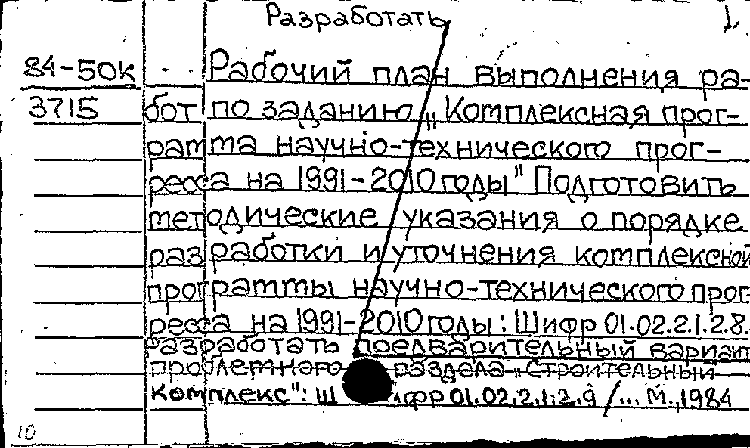 Разработать 1.
84-50к Рабочий план выполнения ра-
3715 бот по заданию „Комплексная прог-
рамма научно-технического прог-
ресса на 1991-2010 годы" Подготовить
методические указания о порядке
разработки и уточнения комплексной
программы научно-технического прог
ресса на 1991-2010 годы: Шифр 01.02.2.1.2.8.
Разработать предварительный вариант
проблемного раздела „Строительный
комплекс": Ш фр 01.02.2.1.2.9 /... М., 1984
10